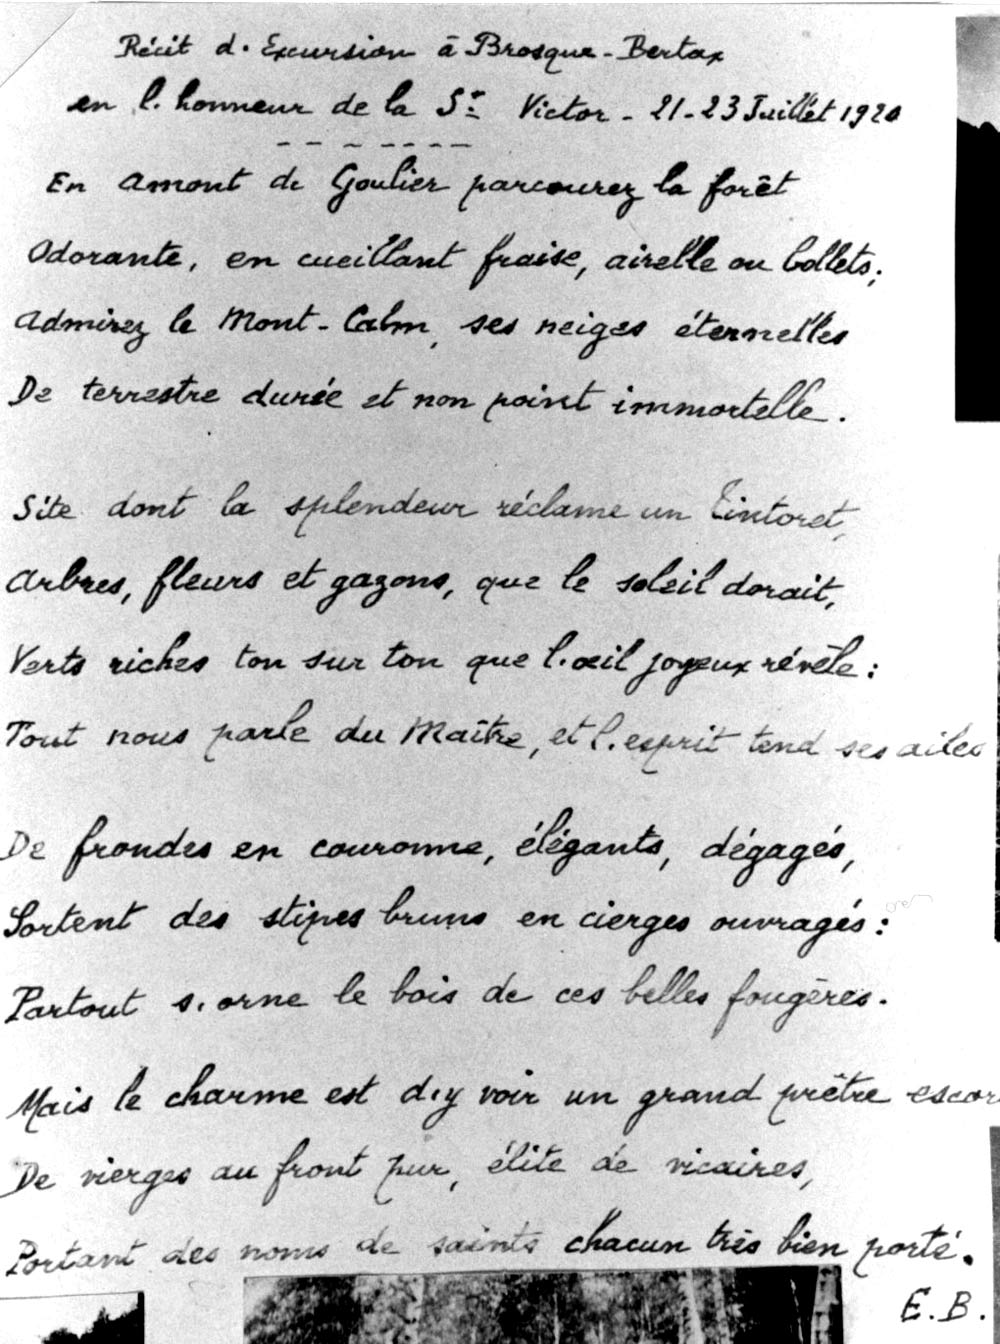 Récit d'Excursion à Brosque-Bertax
en l'honneur de la St Victor - 21-23 Juillet 1920
En amont de Goulier parcourez la forêt
Odorante, en cueillant fraise, airelle ou bollets;
Admirez le Mont-Calm, ses neiges éternelles
De terrestre durée et non point immortelle.
Site dont la splendeur réclame un Tintoret,
Arbres, fleurs et gazons, que le soleil dorait,
Verts riches ton sur ton que l'œil joyeux révèle:
Tout nous parle du Maître, et l'esprit tend ses ailes
De frondes en couronne, élégants, dégagés,
Sortent des stipes bruns en cierges ouvragés:
Partout s'orne le bois de ces belles fougères.
Mais le charme est d'y voir un grand prêtre escor
De vierges au front pur, élite de vicaires,
Portant des noms de saints chacun très bien porté.
E.B.